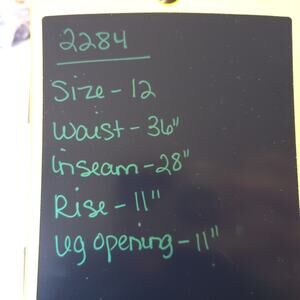 2284
Size - 12
Waist - 36"
Inseam - 28"
Rise - 11"
Leg opening - 11"